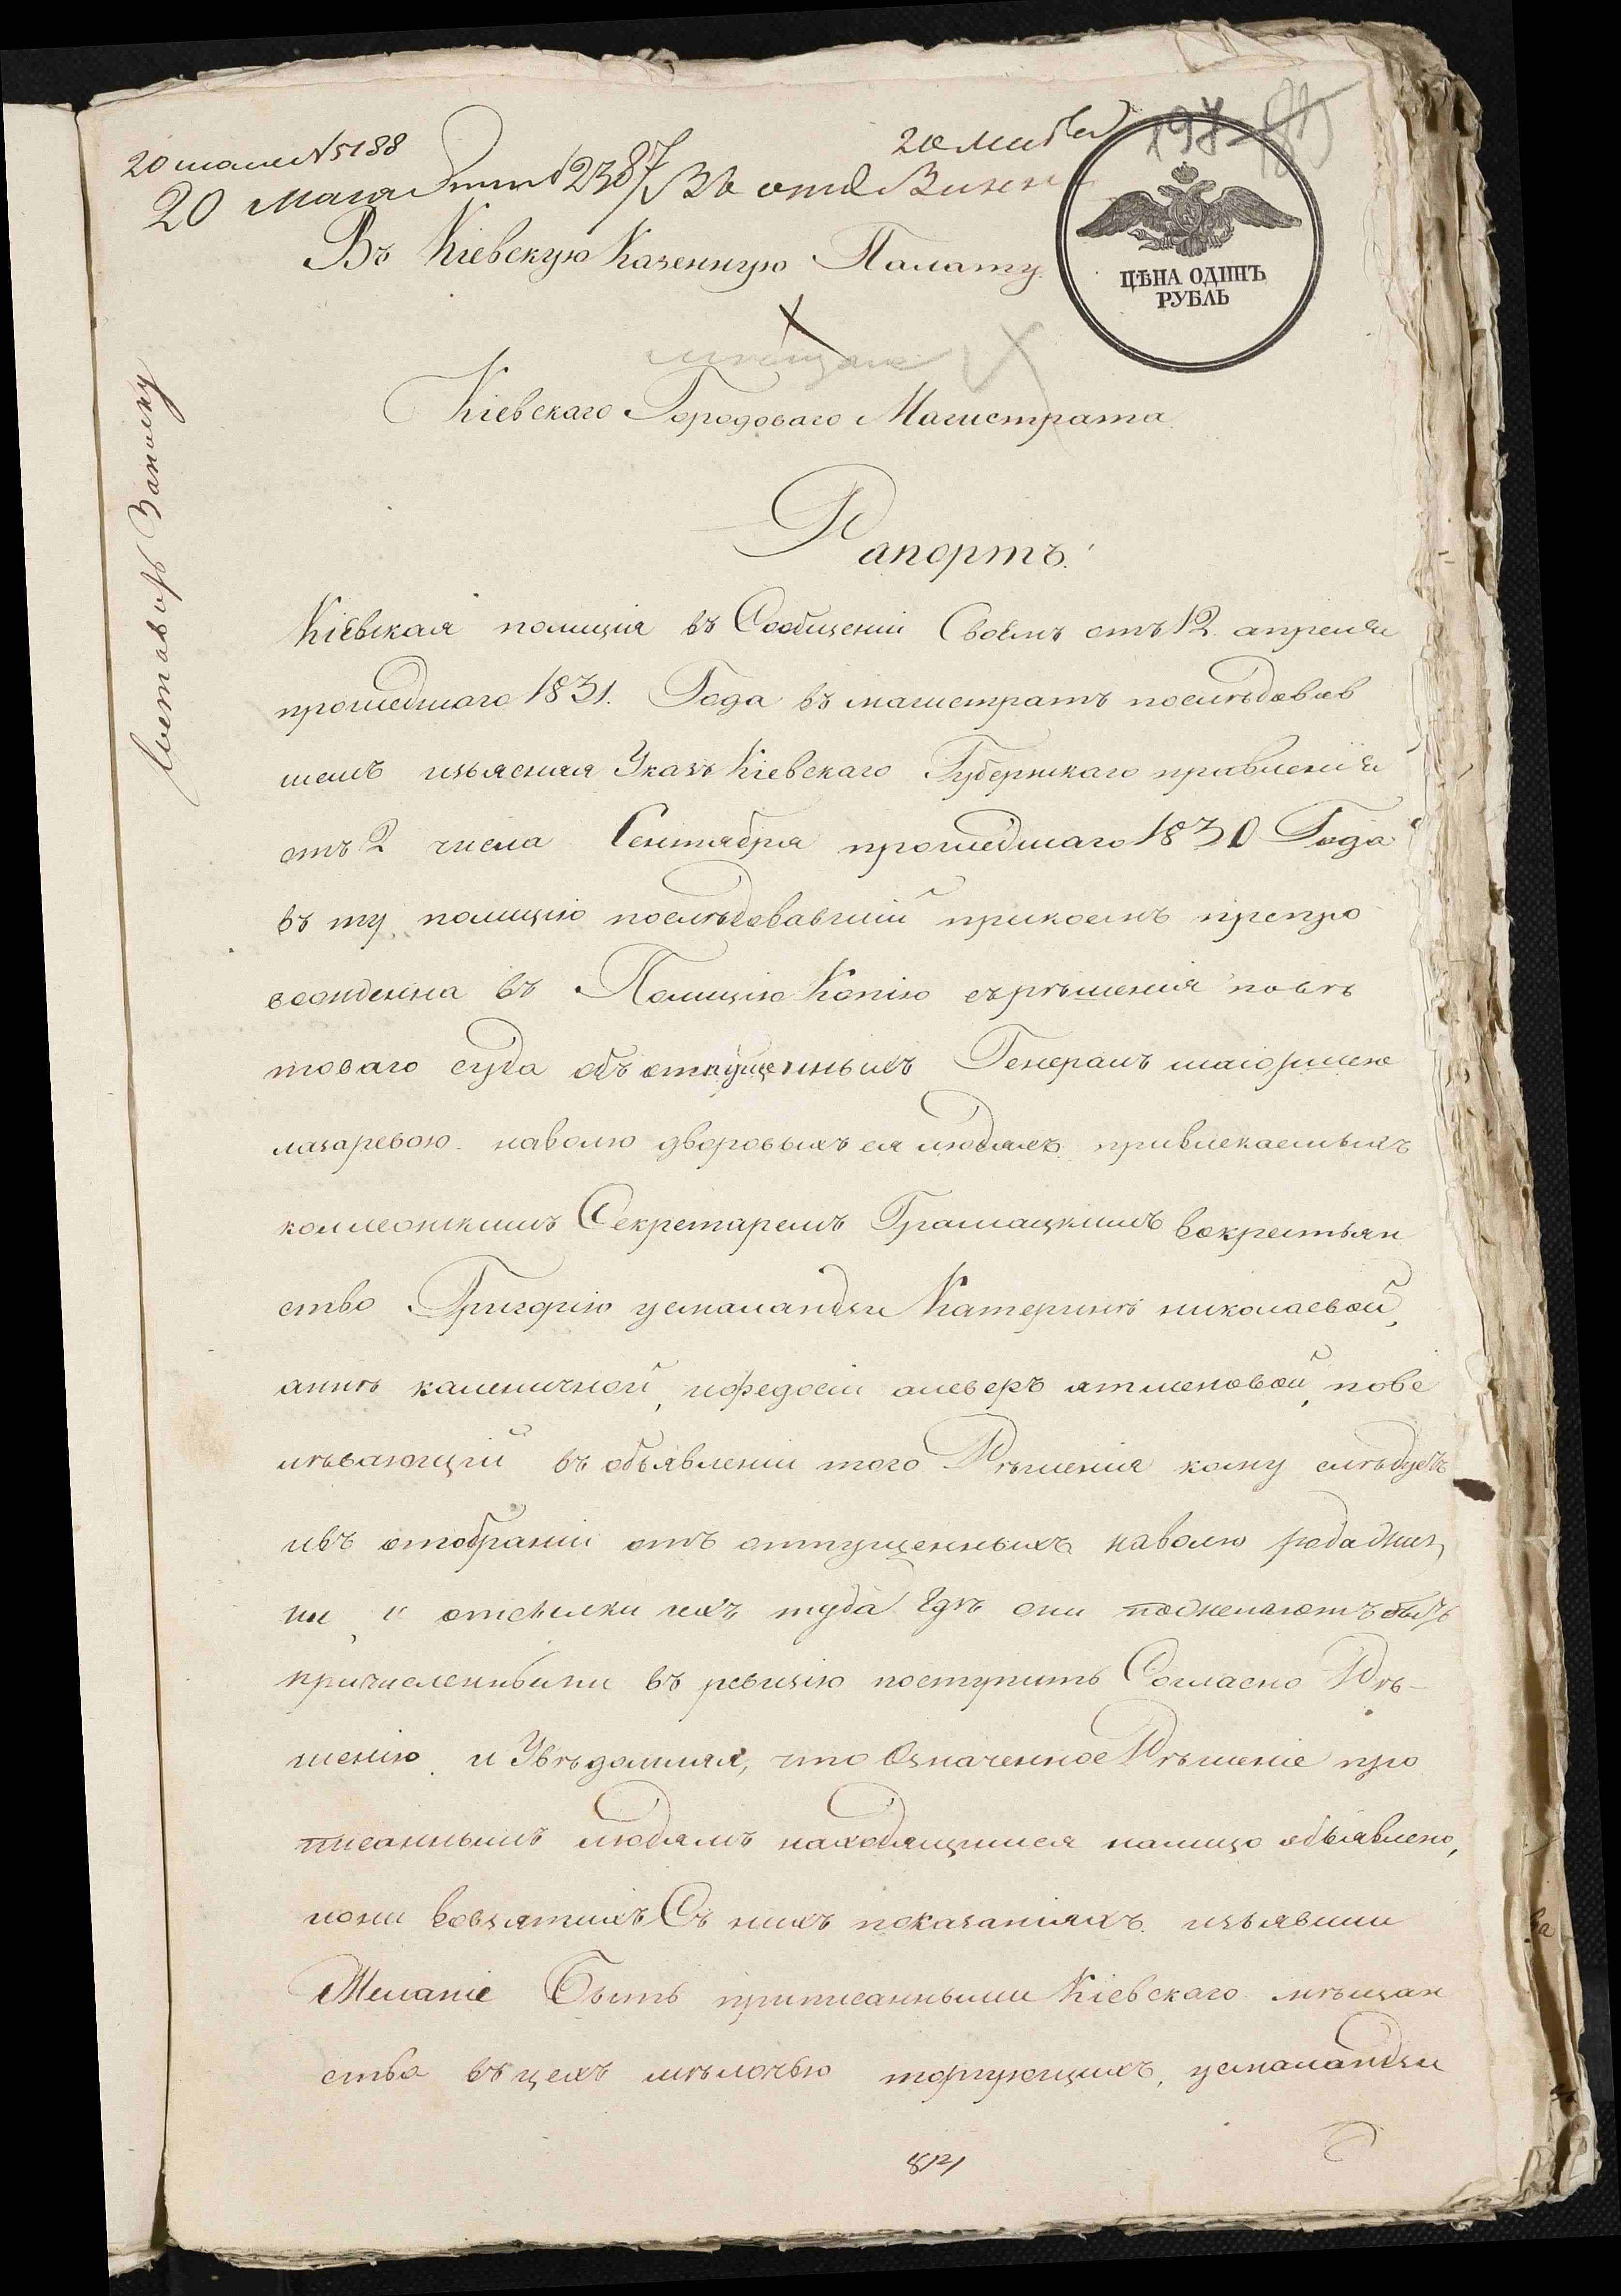 20 мая №5188
20 мая 2387 Въ отд
197
Въ Кіевскую Казенную Палату
ЦѢНА ОДИНЪ
РУБЛЬ
мещане
Кіевскаго Городоваго Магистрата
Рапортъ.
Кіевская полиція въ Сообщеніи Своемъ отъ 12. апреля
прошедшаго 1831. Года въ магистратъ последовав
шемъ изъясняя Указъ Кіевскаго Губернскаго правленія
отъ 2 числа Сентября прошедшаго 1830 Года
въ ту полицію последовавшій прикоемъ препро
вожденна въ Полицію Копію съ рѣшенія повѣ
товаго суда объ отпущенныхъ Генералъ маіоршею
лазаревою наволю дворовыхъ ея людяхъ привлекаемыхъ
коллежскимъ Секретаремъ Грамацкимъ вокрестьян
ство Григорію усмаландзи Катеринѣ николаевой,
аннѣ каменичной, ифедосіи атменовой, пове
лѣвающій въ объявленіи того Рѣшенія кому слѣдуетъ
ивъ отобраніи отъ отпущенныхъ наволю
ни, и отсылки ихъ туда гдѣ они пожелаютъ быть
причисленными въ ревизію поступить Согласно Рѣ-
шенію и Увѣдомляя, что Означенное Рѣшеніе про
писаннымъ людямъ находящимся налицо объявлено,
иони вовзятихъ Съ нихъ показаніяхъ изъявили
Желаніе Быть приписанными Кіевскаго мѣщан
ства въ цехъ мѣлочью торгующихъ, усмаландзи